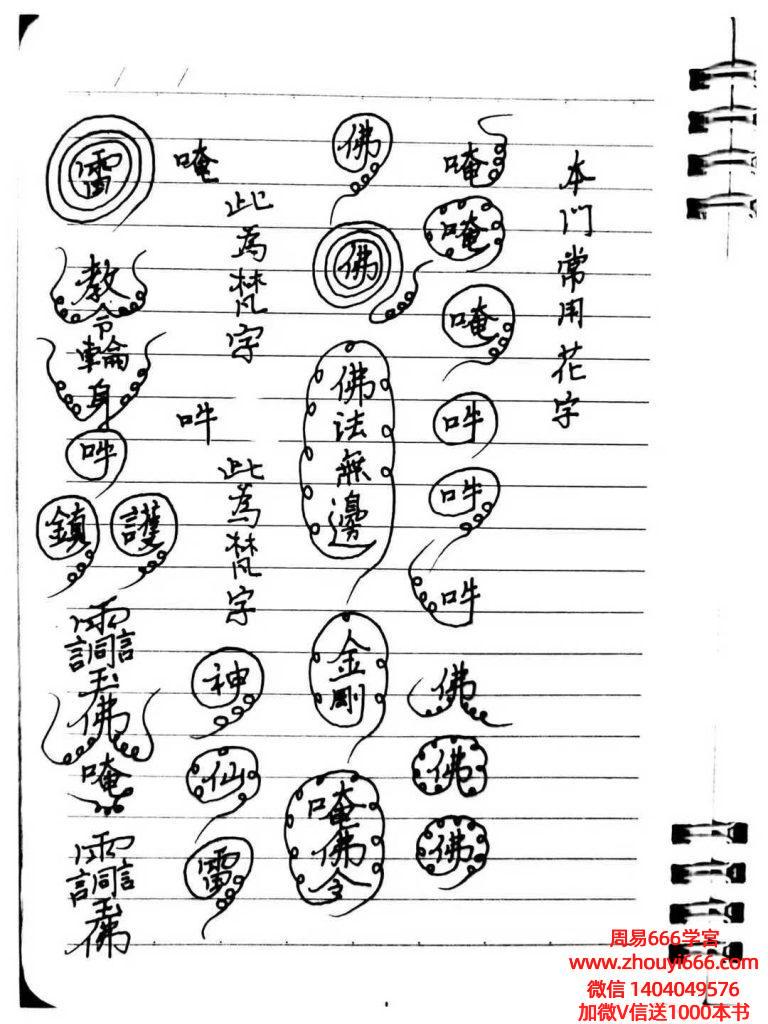 本門常用花字
唵
唵
唵
吽
吽
吽
佛
佛
佛
佛
佛
佛法無邊
金剛
唵佛令
唵
此為梵字
吽
此為梵字
神
仙
雷
雷
教令輪身
吽
護
鎮
佛
唵
佛
周易666学宫
www.zhouyi666.com
微信 1404049576
加微V信送1000本书